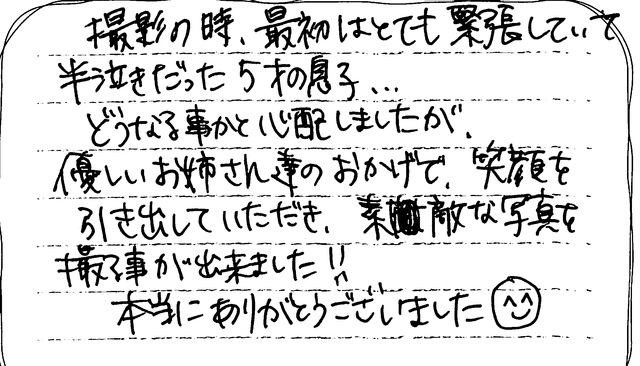 撮影の時、最初はとても緊張していて
半う泣きだった5才の息子...
どうなる事かと心配しましたが、
優しいお姉さん達のおかげで、笑顔を
引き出していただき、素敵な写真を
撮る事が出来ました!!
本当にありがとうございました